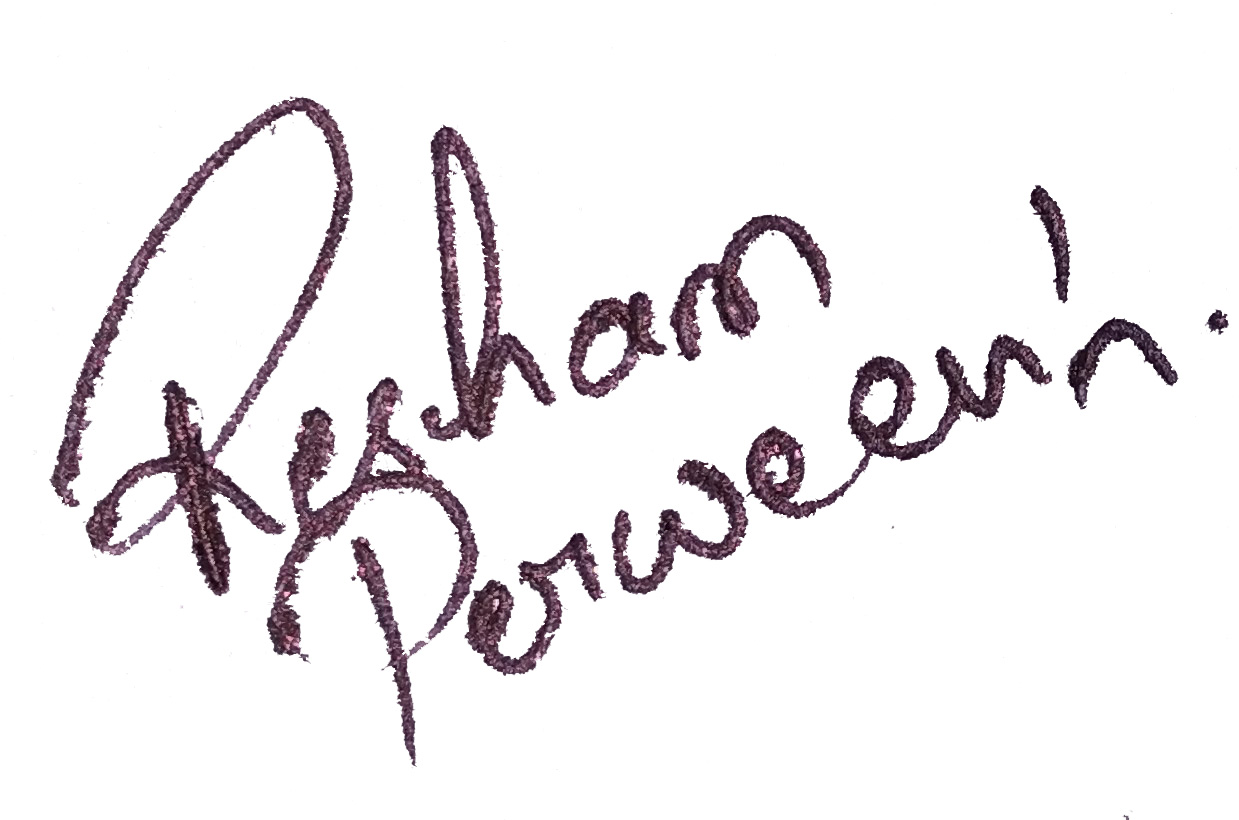 Resham
Perween.